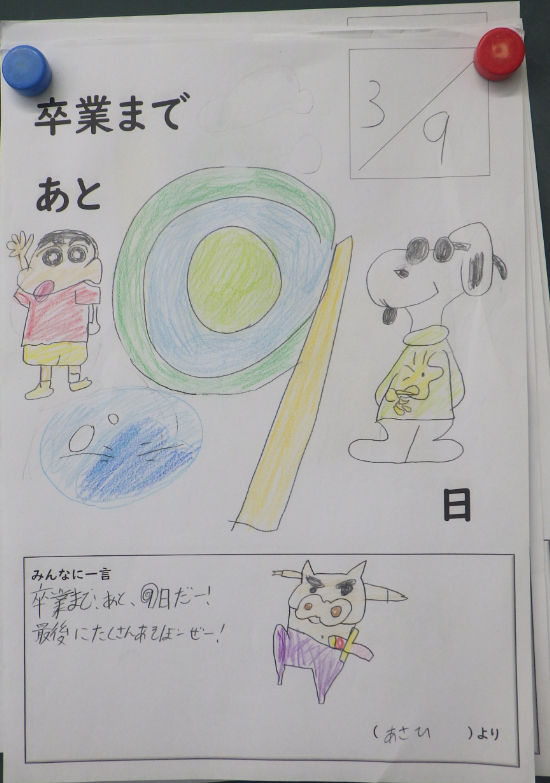 卒業まで
3/9
あと
9
日
みんなに一言
卒業まで、あと、⑨日だー!
最後にたくさんあそぼーぜー!
(あさひ)より